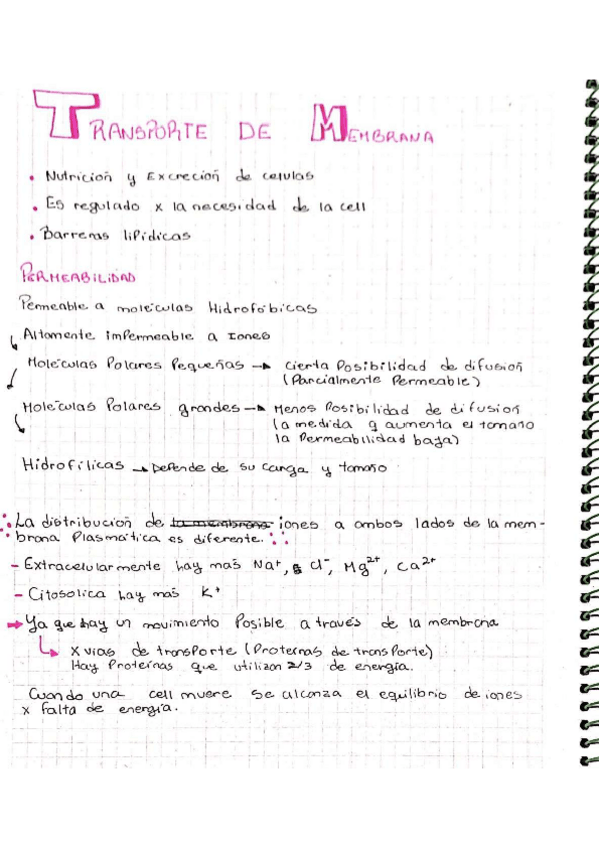 TRANSPORTE DE MEMBRANA
• Nutrición y Excreción de celulas
• Es regulado x la necesidad de la cell
• Barreras lipídicas
PERMEABILIDAD
Permeable a moléculas Hidrofóbicas
Altamente impermeable a Iones
Moléculas Polares Pequeñas → cierta Posibilidad de difusión
(Parcialmente Permeable)
Moléculas Polares grandes → Menos Posibilidad de difusión
(a medida q aumenta el tamaño
la Permeabilidad baja)
Hidrofílicas → Depende de su carga y tamaño
La distribución de la membrana iones a ambos lados de la mem-
brana Plasmática es diferente.
- Extracelularmente hay más Na⁺, Cl⁻, Mg²⁺, Ca²⁺
- Citosolica hay más K⁺
→ Ya que hay un movimiento Posible a través de la membrana
x vías de transporte (Proteínas de transporte)
Hay Proteínas que utilizan 2/3 de energía.
Cuando una cell muere se alcanza el equilibrio de iones
x falta de energía.